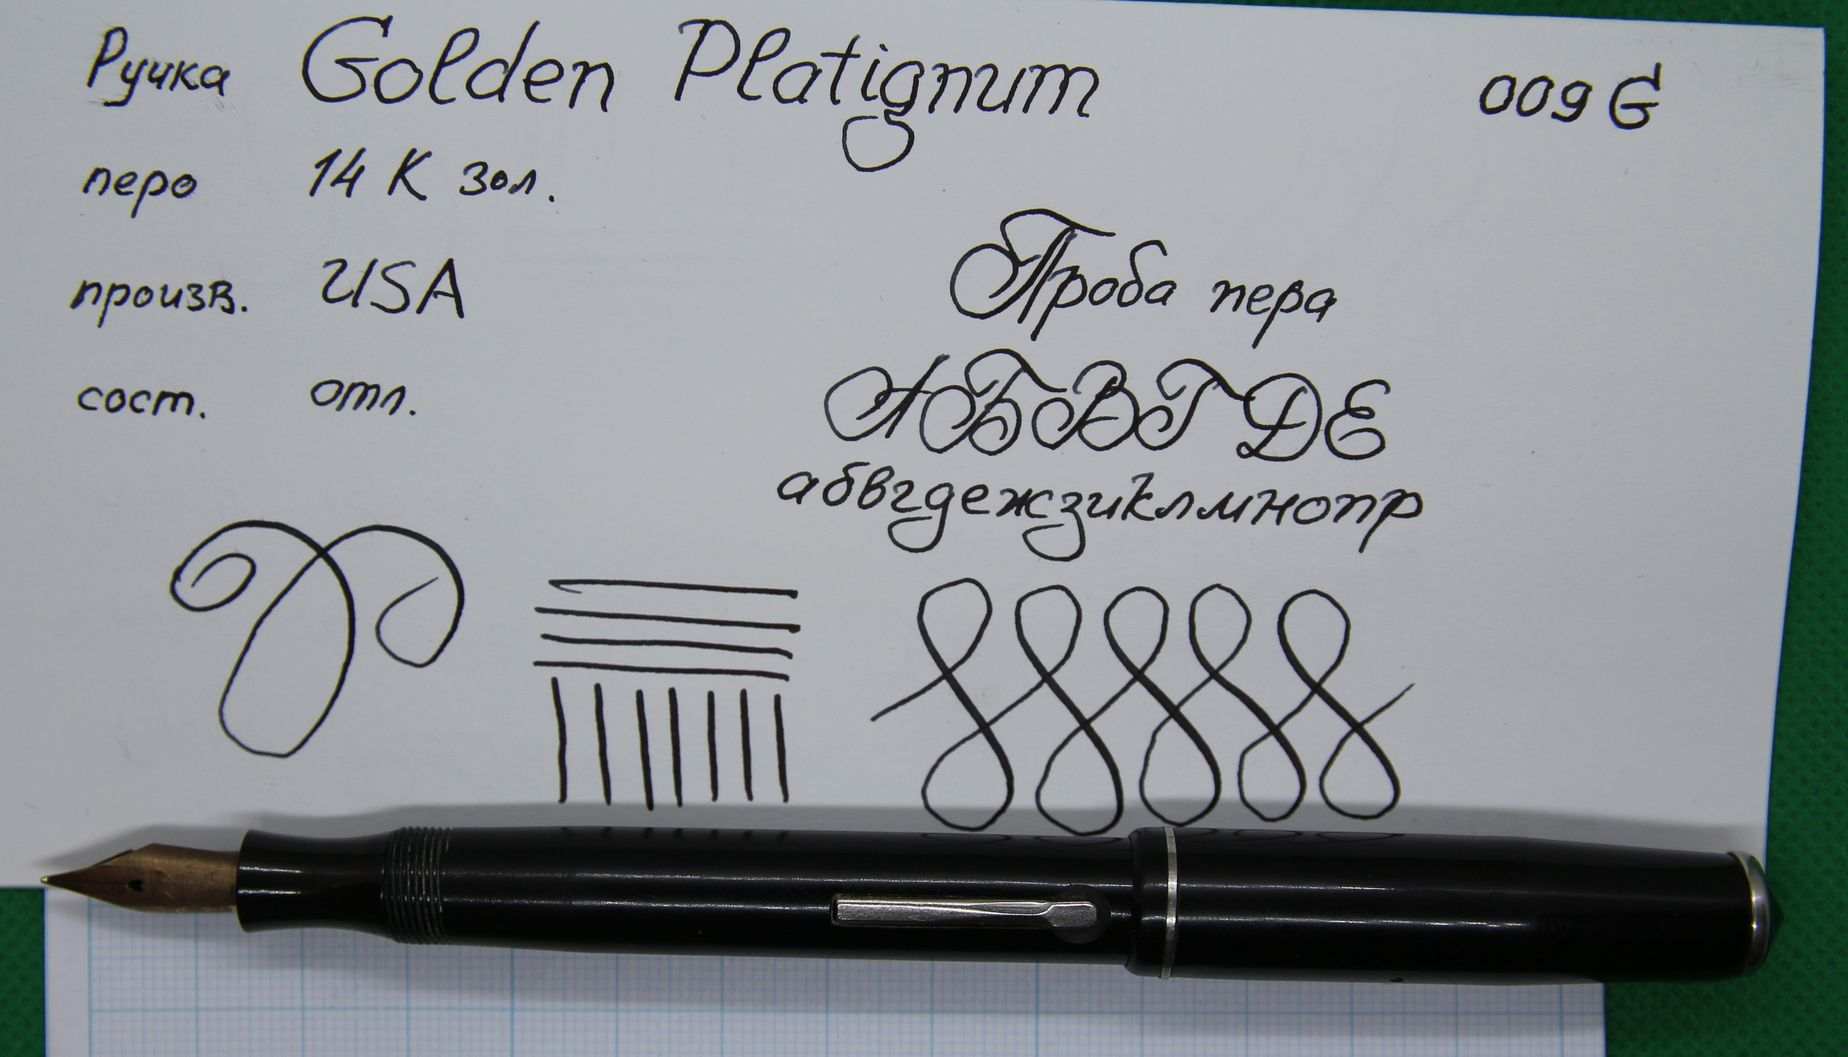 Ручка Golden Platignum 009 G
перо 14 К зол.
произв. USA
сост. отл.
Проба пера
АБВГДЕ
абвгдежзиклмнопр